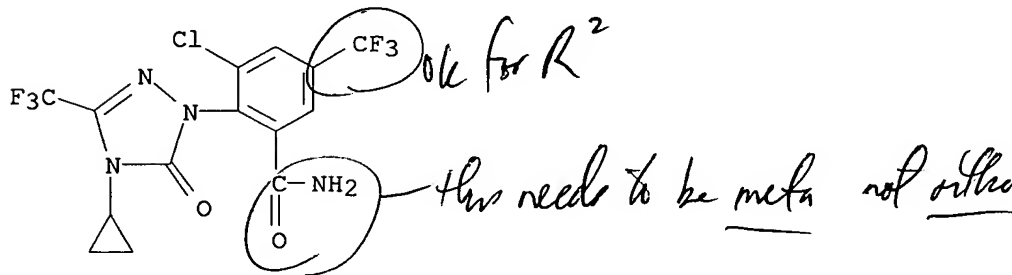 Cl
CF3
ok for R²
N
F3C
N
N
C
NH2
this needs to be meta not ortho
O
O